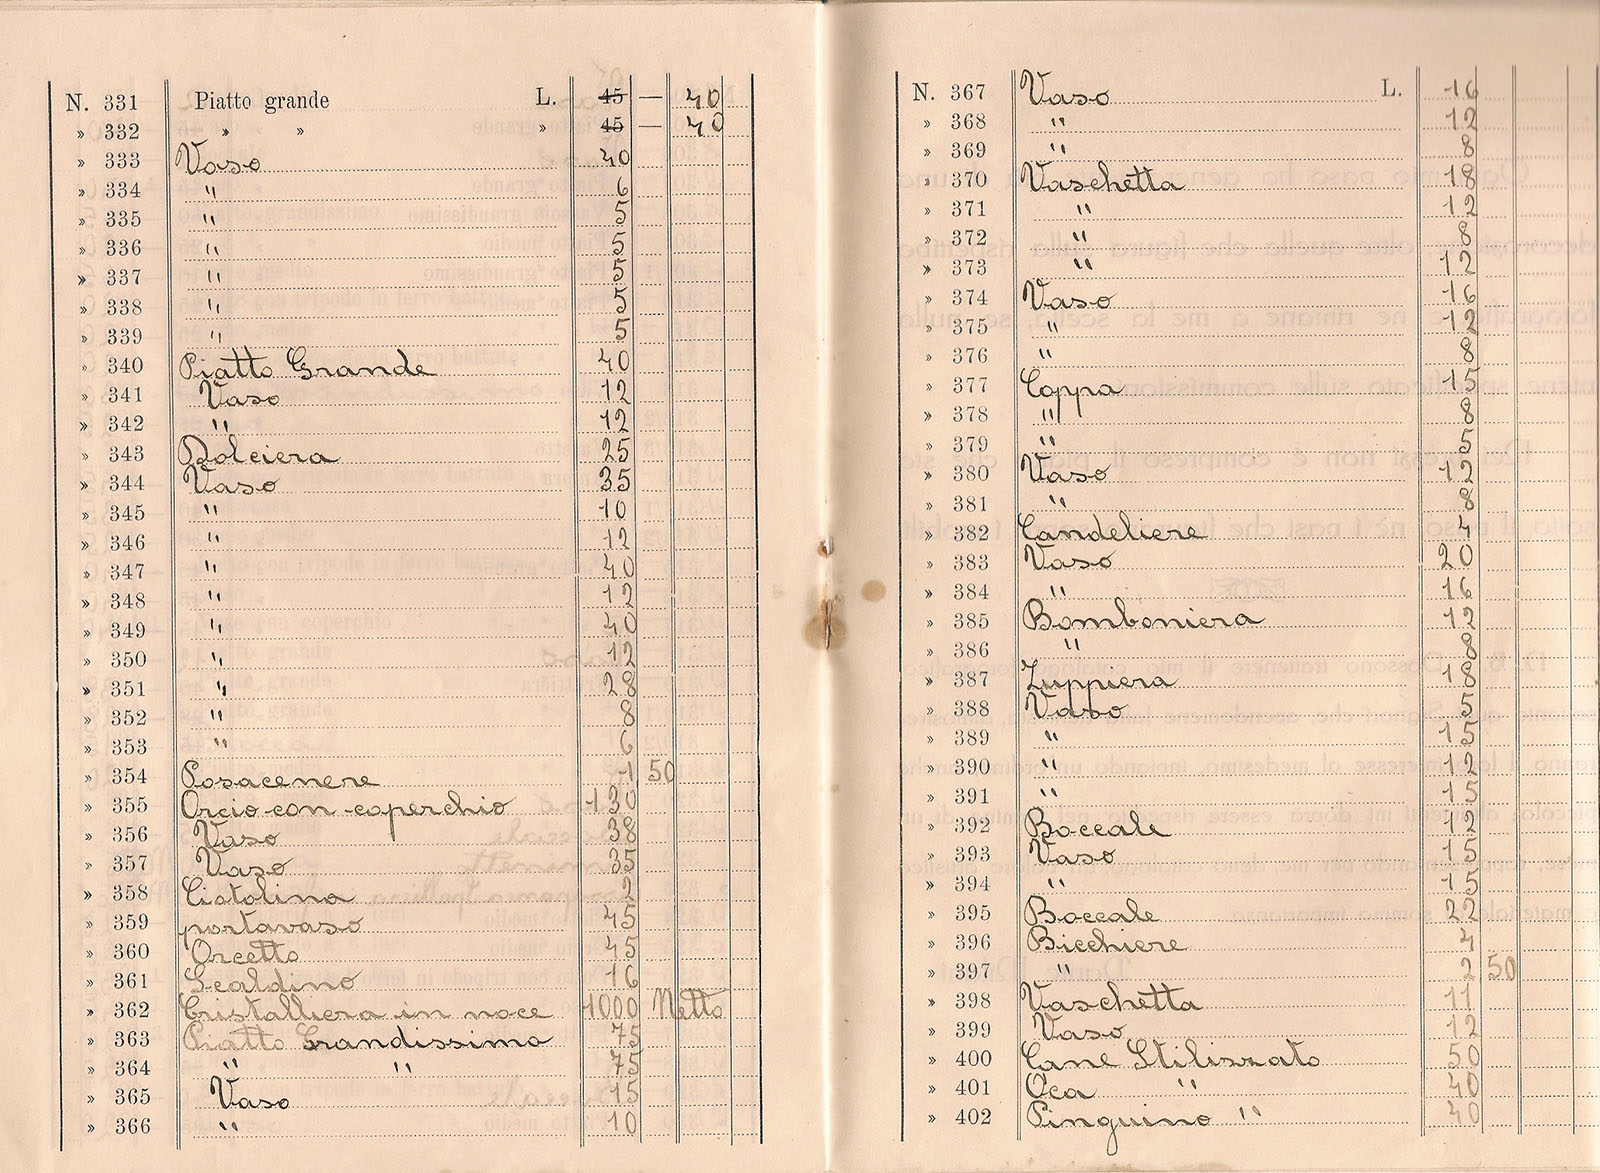 N. 331 Piatto grande L. 45 — 40
» 332 » » » 45 — 40
» 333 Vaso 40
» 334 " 6
» 335 " 5
» 336 " 5
» 337 " 5
» 338 " 5
» 339 " 5
» 340 Piatto Grande 40
» 341 Vaso 12
» 342 " 12
» 343 Dolciera 25
» 344 Vaso 35
» 345 " 10
» 346 " 12
» 347 " 40
» 348 " 12
» 349 " 40
» 350 " 12
» 351 " 28
» 352 " 8
» 353 " 6
» 354 Posacenere 1 50
» 355 Orcio con coperchio 130
» 356 Vaso 38
» 357 Vaso 35
» 358 Ciotolina 2
» 359 portavaso 45
» 360 Orcetto 45
» 361 Scaldino 16
» 362 Cristalliera in noce 1000 Netto
» 363 Piatto Grandissimo 75
» 364 " " 75
» 365 Vaso 15
» 366 " 10
N. 367 Vaso L. 16
» 368 " 12
» 369 " 8
» 370 Vaschetta 18
» 371 " 12
» 372 " 8
» 373 " 12
» 374 Vaso 16
» 375 " 12
» 376 " 8
» 377 Coppa 15
» 378 " 8
» 379 " 5
» 380 Vaso 12
» 381 " 8
» 382 Candeliere 4
» 383 Vaso 20
» 384 " 16
» 385 Bomboniera 12
» 386 " 8
» 387 Zuppiera 18
» 388 Vaso 5
» 389 " 15
» 390 " 12
» 391 " 15
» 392 Boccale 12
» 393 Vaso 15
» 394 " 15
» 395 Boccale 22
» 396 Bicchiere 4
» 397 " 2 50
» 398 Vaschetta 11
» 399 Vaso 12
» 400 Cane Stilizzato 50
» 401 Oca " 40
» 402 Pinguino " 40